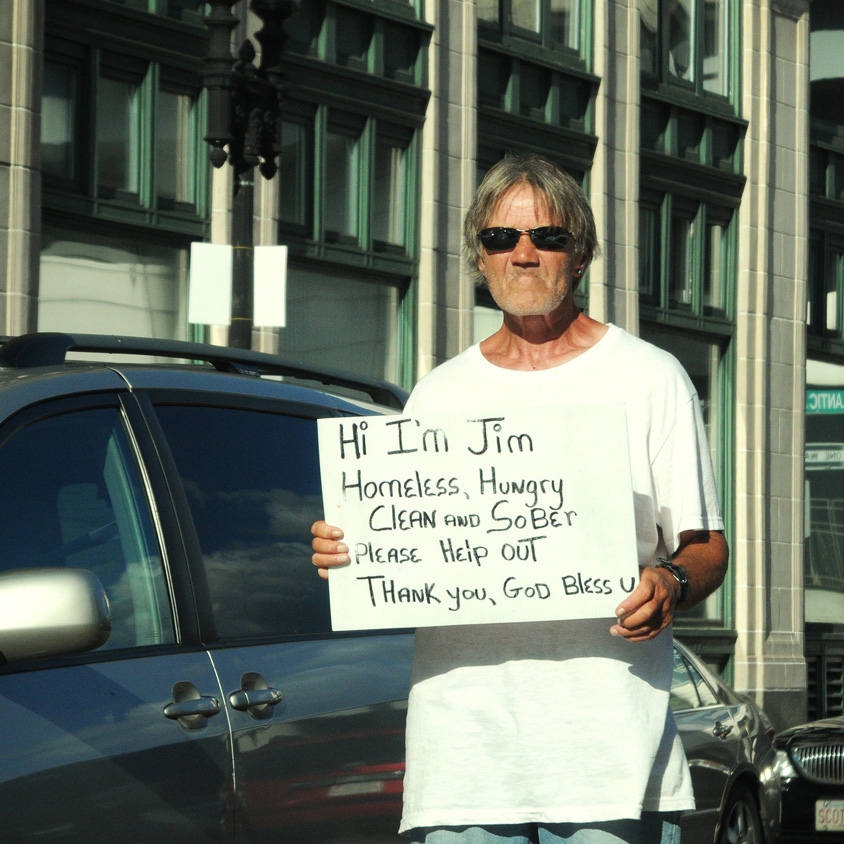 Hi I'm Jim
Homeless, Hungry
CLEAN AND SoBEr
PLEASE HElp OUT
THANK you, GOD BlESS U